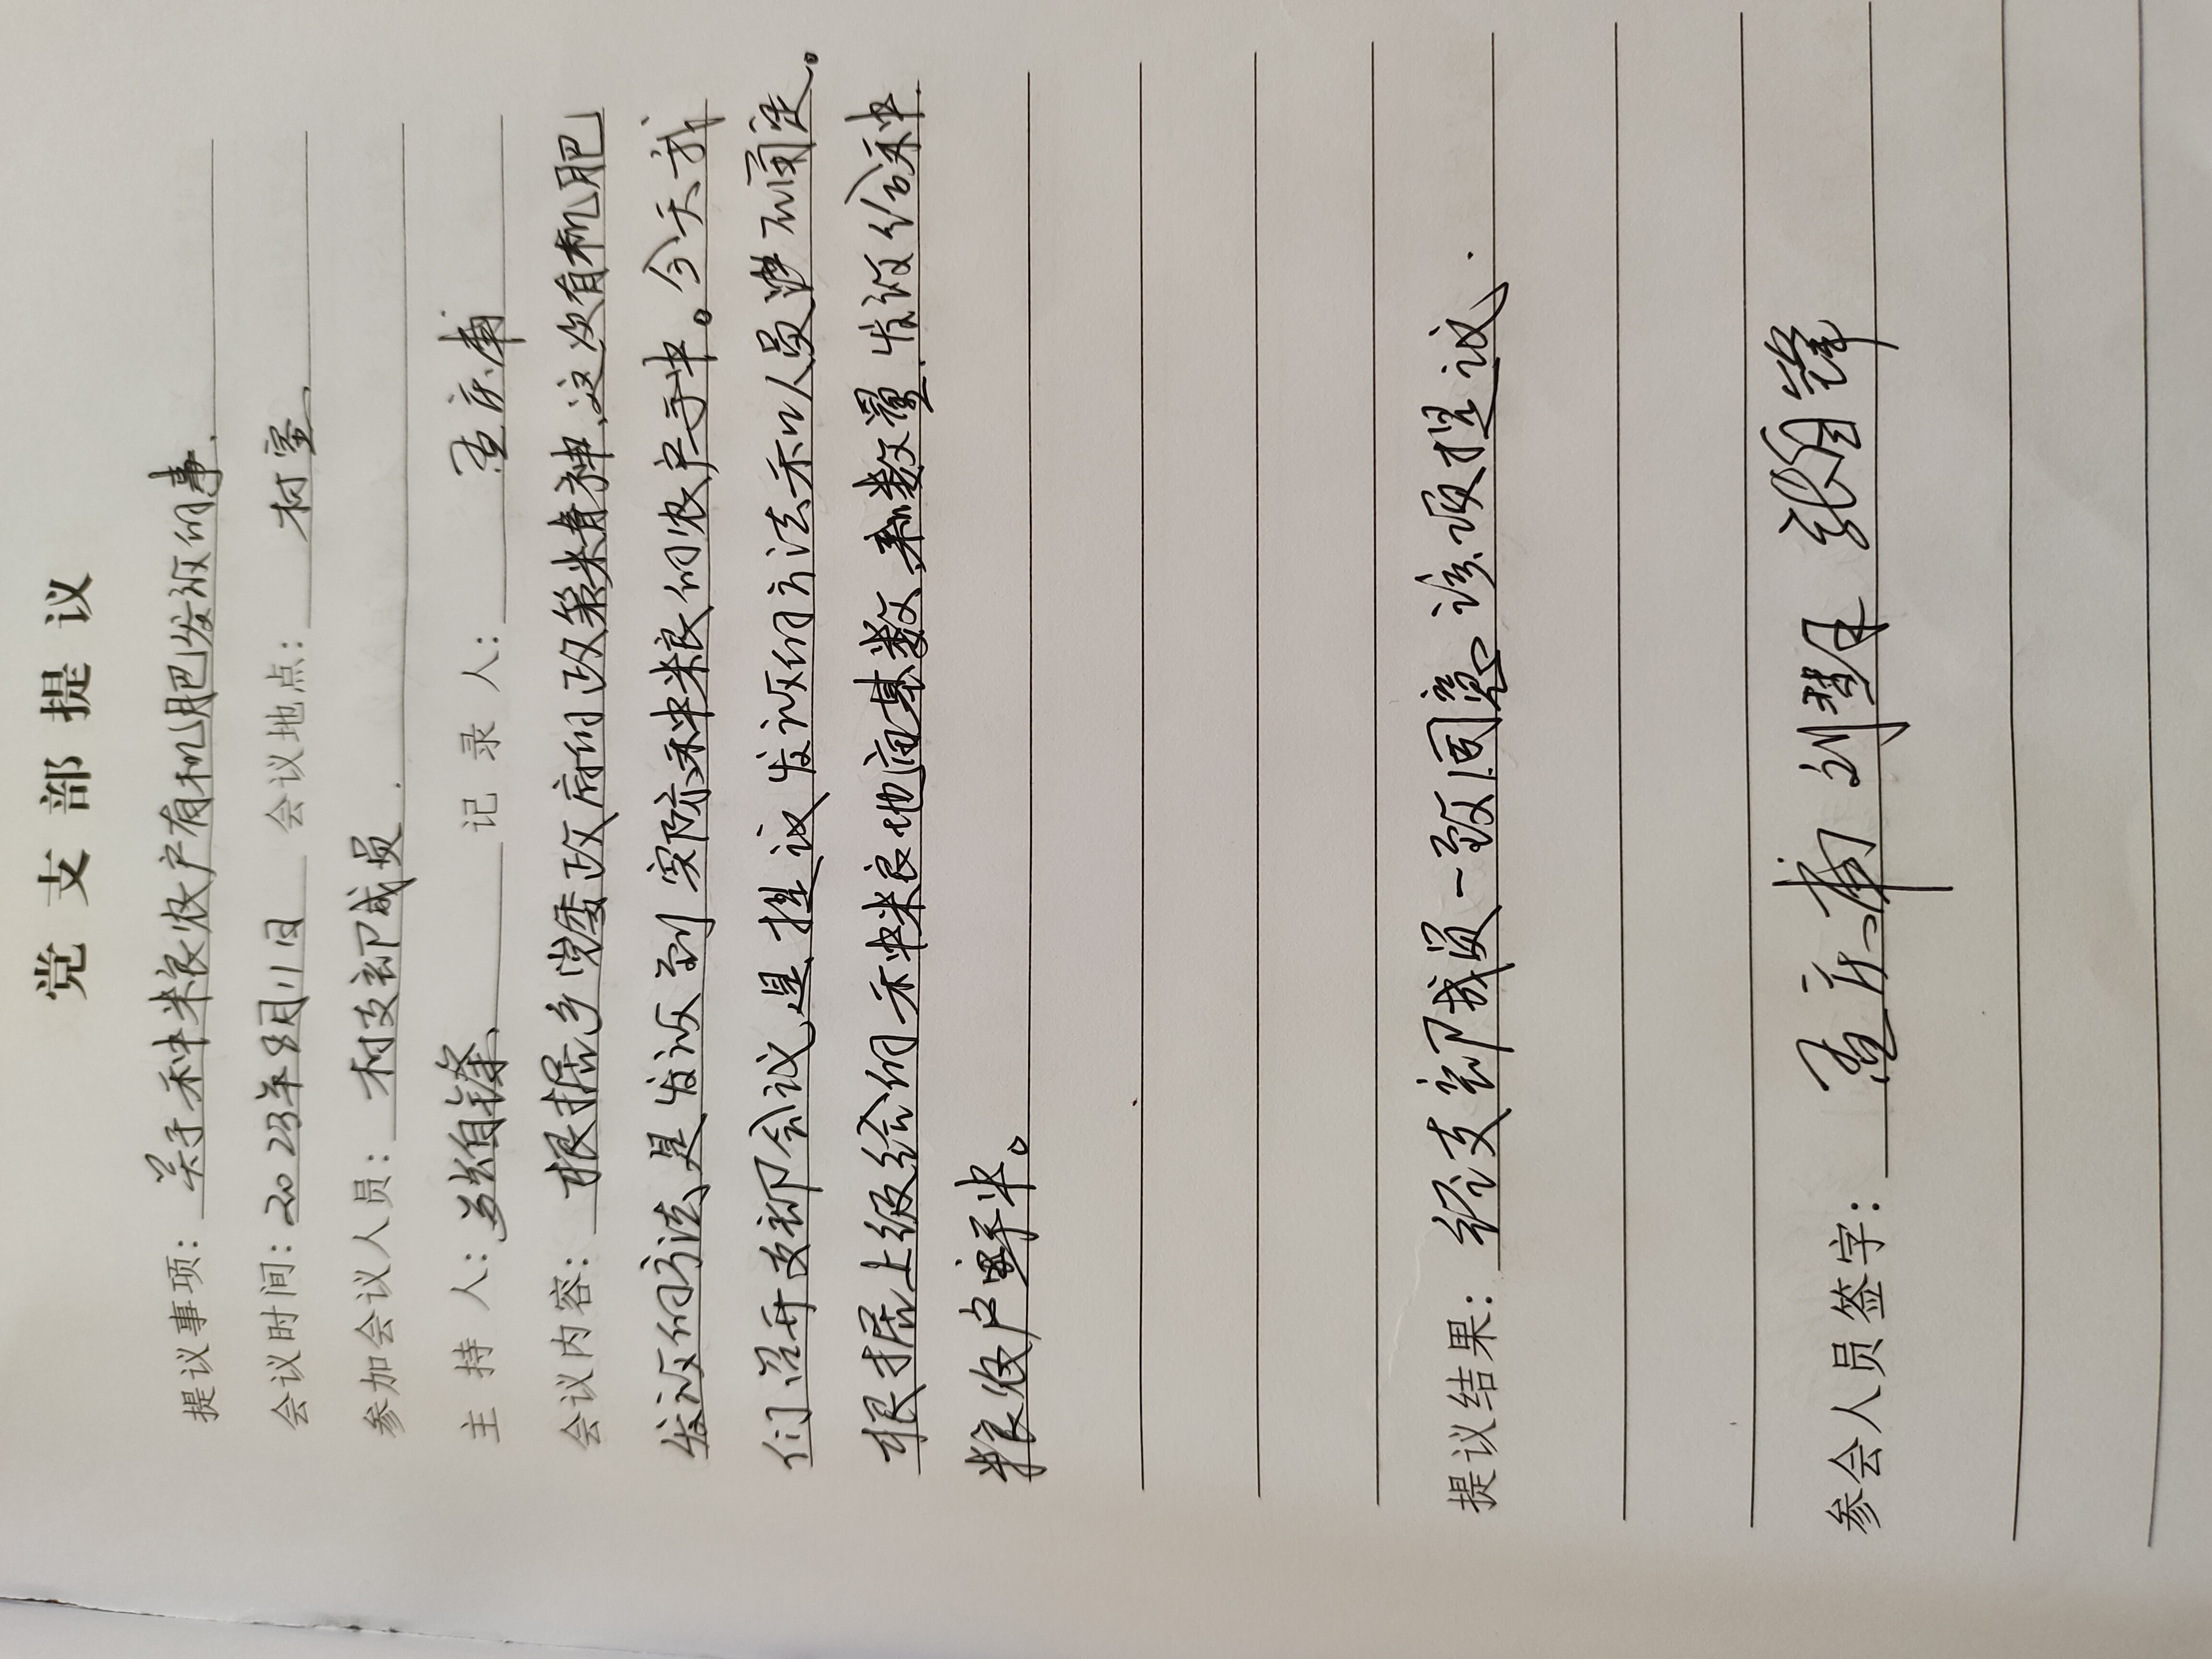 党支部提议
提议事项：关于种粮农户有机肥发放的事.
会议时间：2023年8月11日 会议地点：村室
参加会议人员：村支部成员.
主持人：张自锋 记录人：孟庆甫
会议内容：根据乡党委政府的政策精神、这次有机肥
发放的方法是发放到实际种粮的农户手中。今天我
们召开支部会议、是提议发放的方法和人员确定。
根据上级给的种粮地亩基数和数量.发放给种
粮农户手中。
提议结果：经支部成员一致同意该项提议.
参会人员签字：孟庆甫 刘 张自锋